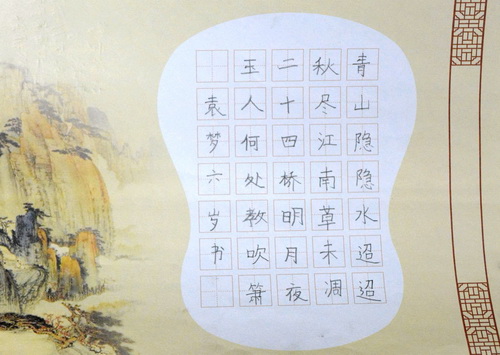 青山隐隐水迢迢
秋尽江南草未凋
二十四桥明月夜
玉人何处教吹箫
袁梦六岁书